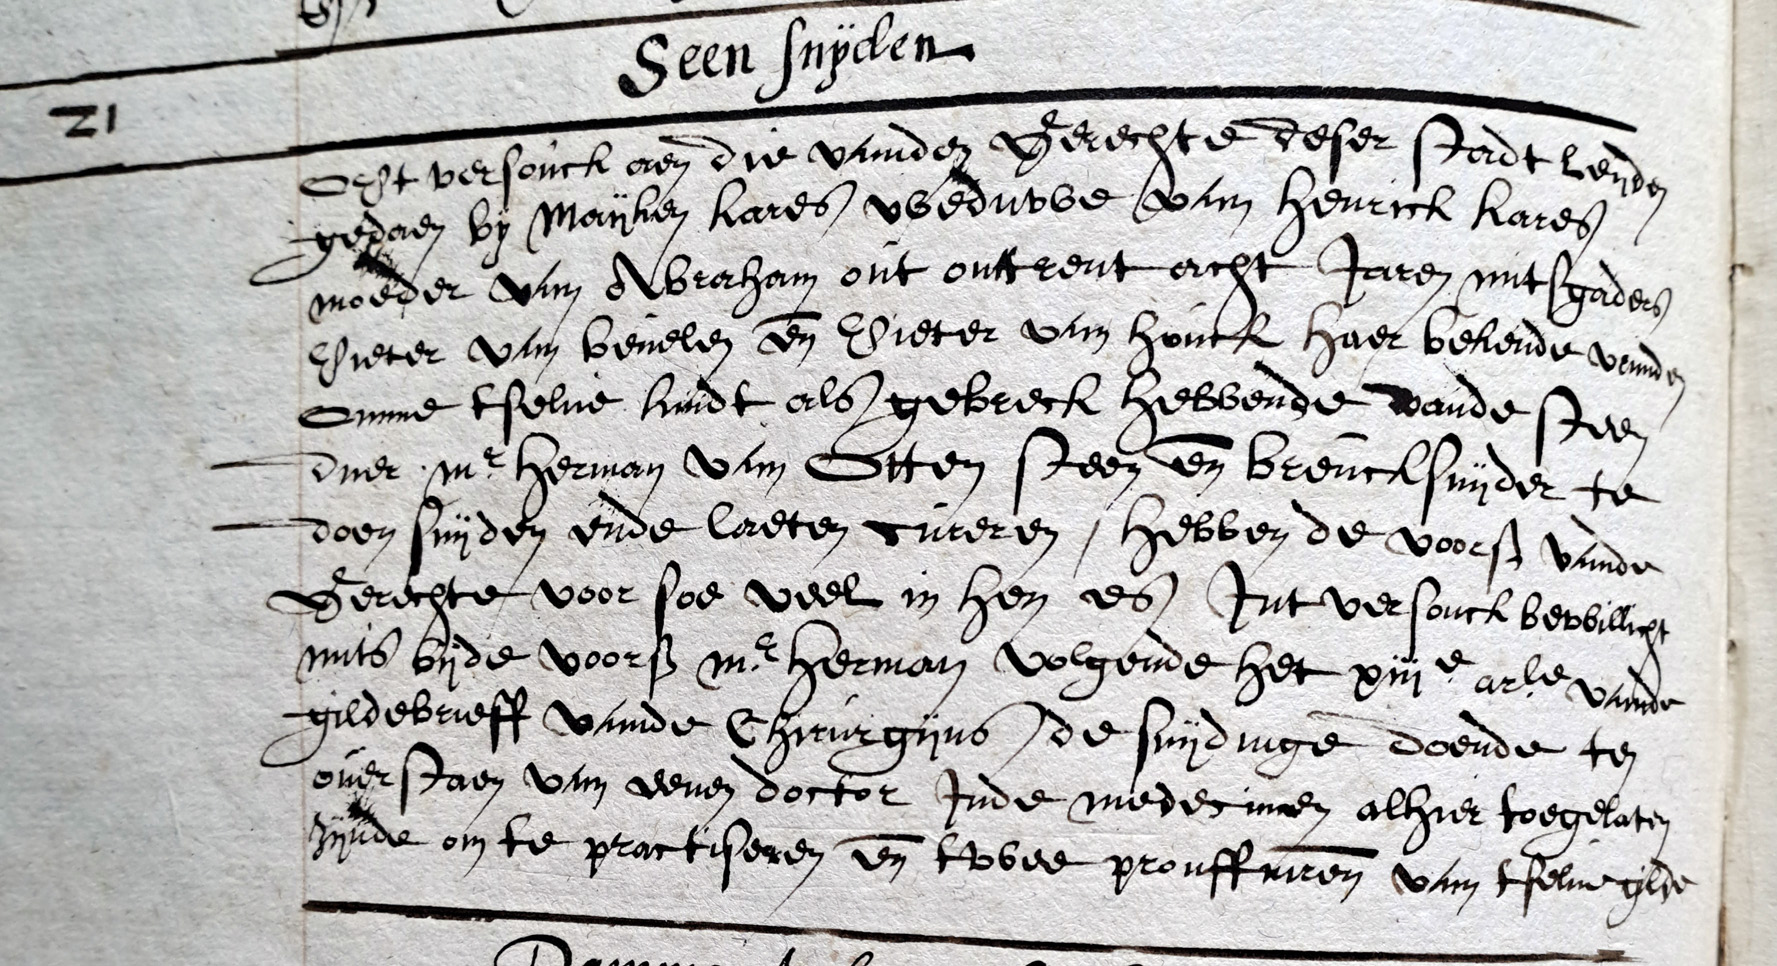 Seen snyden
21
Opt versouck aen die vanden Gerechte deser Stadt Leyden
gedaen by Mayken Kares weduwe van Henrick Kares
moeder van Abraham out outtrent acht Jaren mitsgaders
Pieter van Beuelen en Pieter van Houck haer bekende vrunden
Omme tselue kindt als gebreck hebbende vande steen
duer mr Herman van Otten steen en breucksnyder te
doen snyden ende laeten cureren / hebben de voorsz vande
Gerechte voor soe veel in hen es Int versouck bewillicht
mits byde voorsz mr Herman volgende het xiije arle vande
gildebrieff vande Chirurgijns de snydinge doende ten
ouerstaen van eenen doctor Inde medecinen alhier toegelaten
zijnde om te practiseren en twee prouffmren van tselue gilde